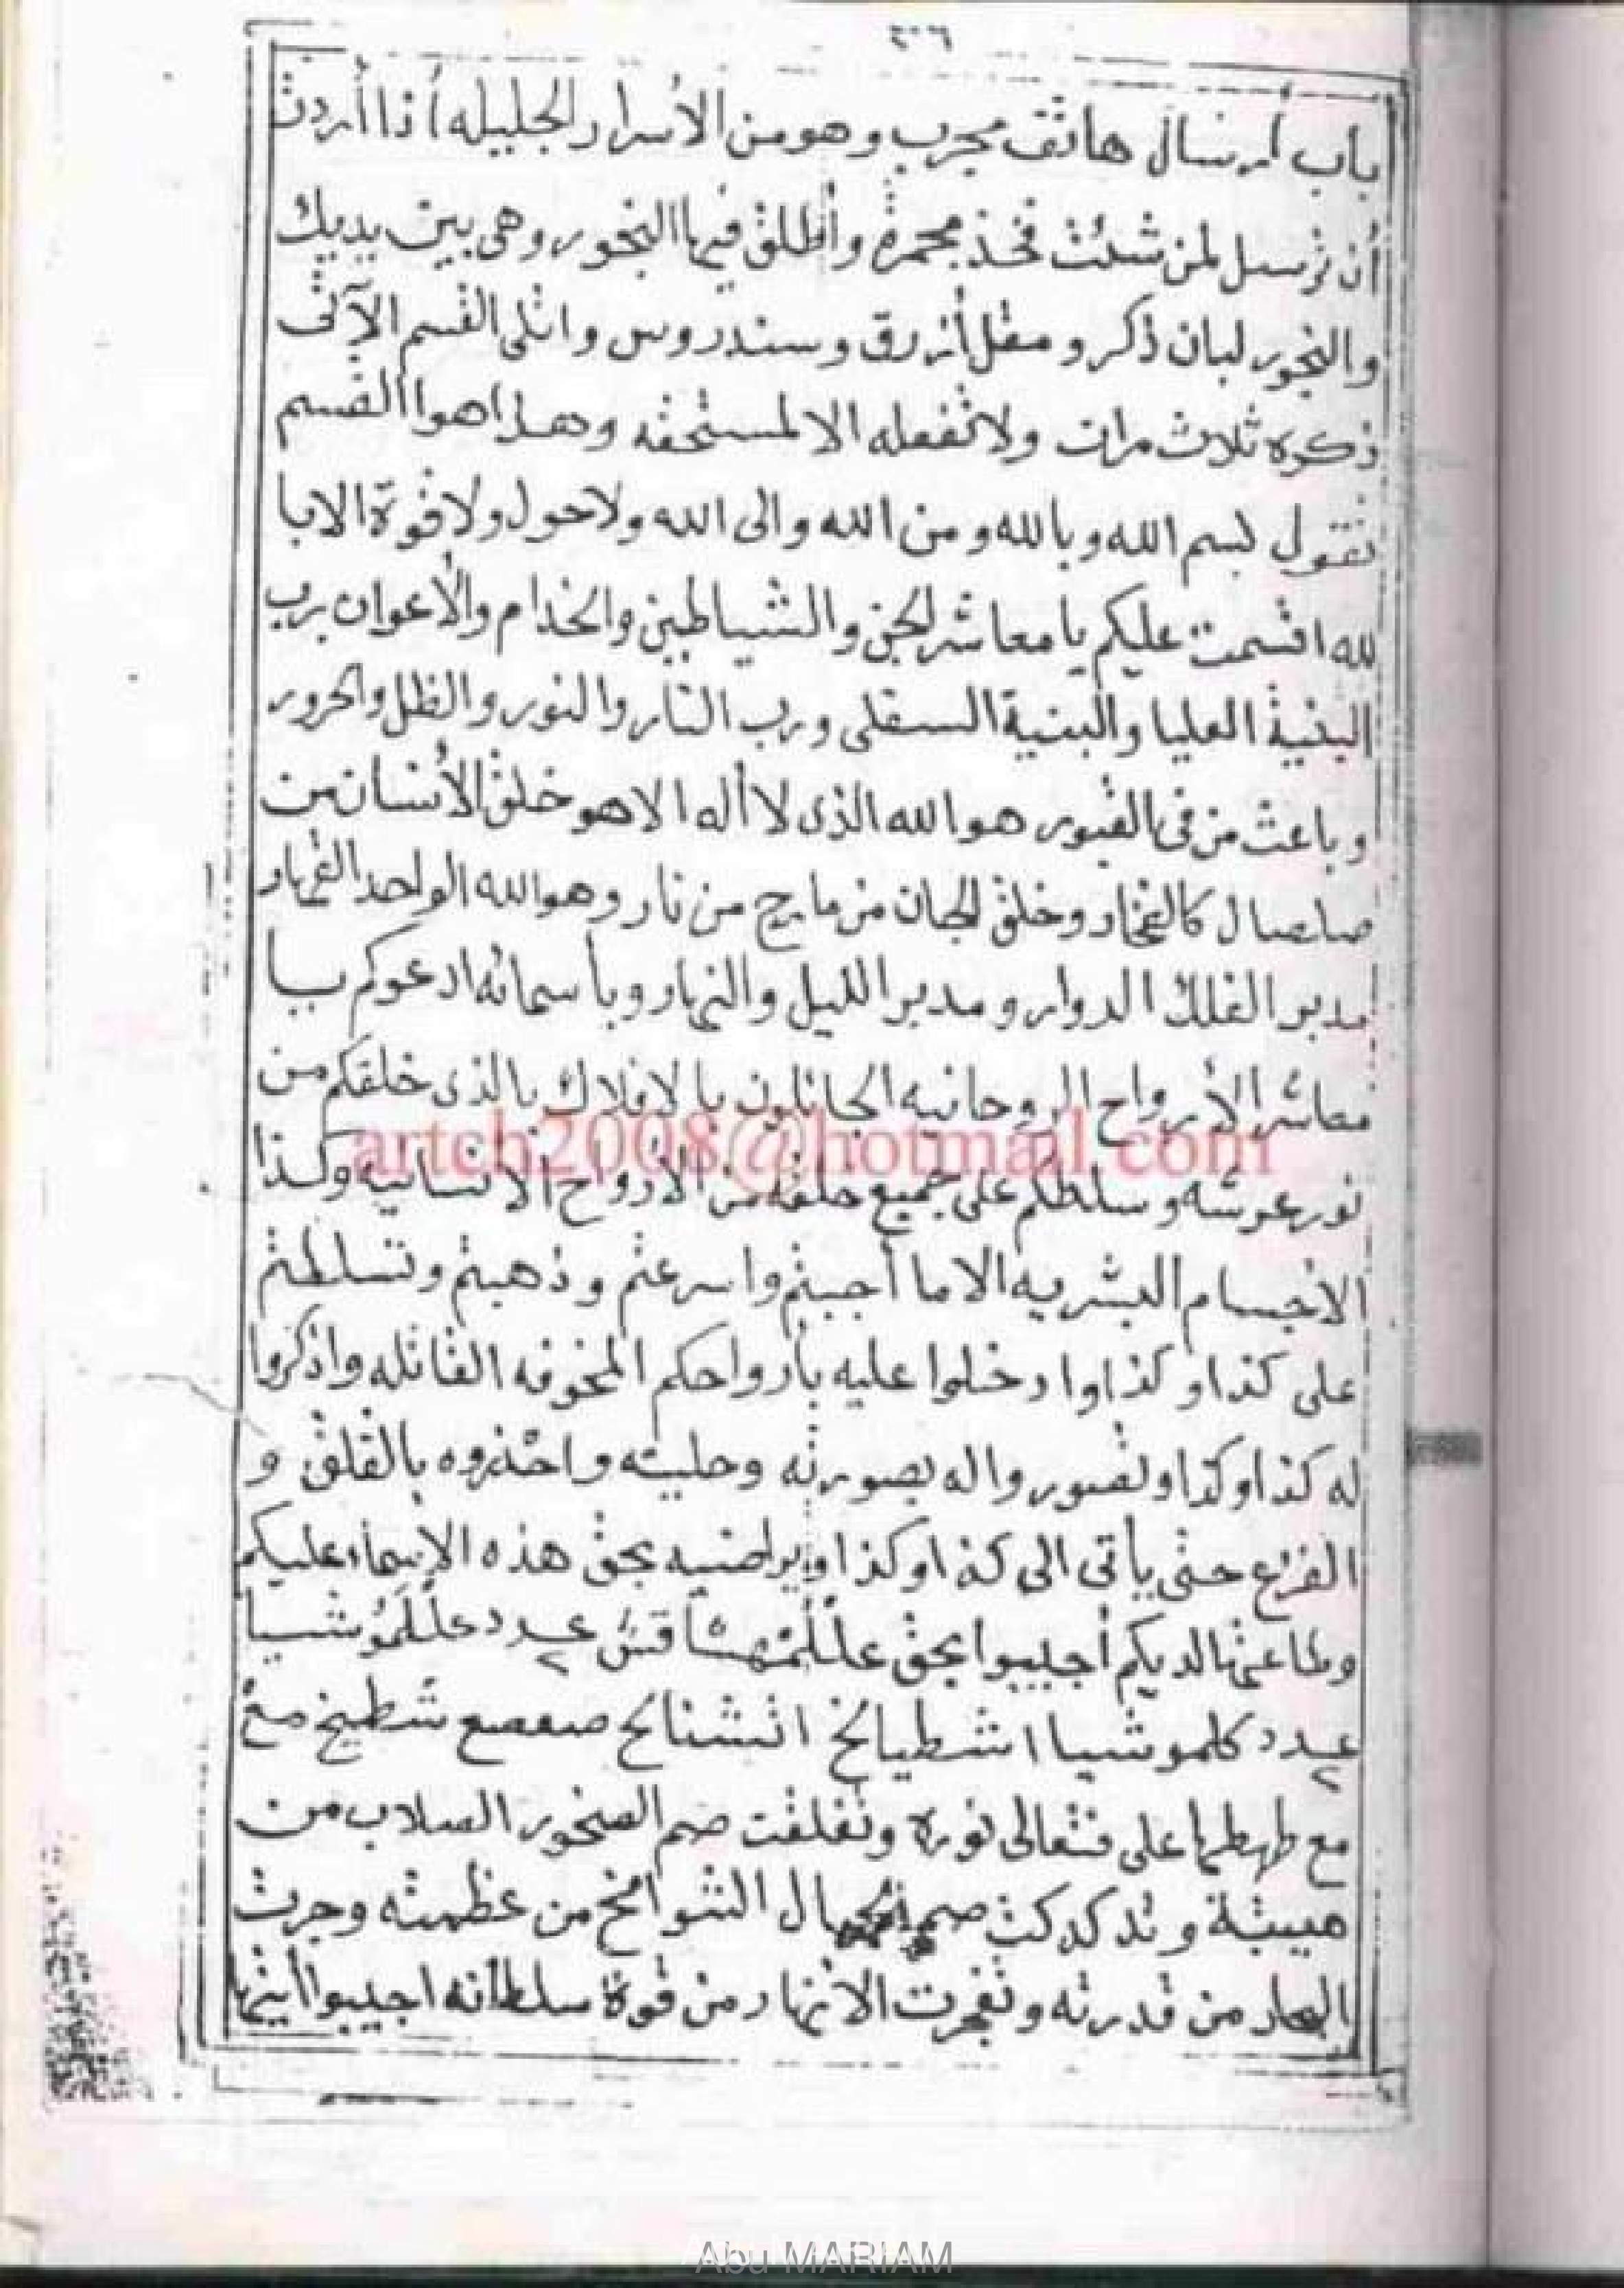 ٢٠٦
باب أرسال هاتف مجرب وهو من الأسرار الجليله أذا أردت
أن ترسل لمن شئت فخذ مجمرة وأطلق فيها البخور وهى بين يديك
والبخور لبان ذكر ومقل أزرق وسندروس واتلى القسم الآتى
ذكره ثلاث مرات ولا تفعله الا لمستحقه وهذا هوا القسم
تقول بسم الله وبالله ومن الله والى الله ولا حول ولا قوة الا با
لله اقسمت عليكم يا معاشر الجن والشياطين والخدام والأعوان برب
البنية العليا والبنية السفلى ورب النار والنور والظل والحرور
وباعث من فى القبور هو الله الذى لا أله الا هو خلق الأنسان من
صلصال كالفخار وخلق الجان من مارج من نار وهو الله الواحد القهار
مدبر الفلك الدوار ومدبر الليل والنهار وبأسمائه ادعوكم يا
معاشر الأرواح الروحانيه الجائلون بالافلاك بالذى خلقكم من
artch2008@hotmail.com
نور عرشه وسلطكم على جميع خلقه من الأرواح الانسانيه وكذا
الاجسام البشريه الا ما أجبتم واسرعتم وذهبتم وتسلطتم
على كذا وكذا وادخلوا عليه بأرواحكم المخوفه القاتله واذكروا
له كذا وكذا وتصوروا له بصورته وحليته واحذروه بالقلق و
الفزع حتى يأتى الى كذا وكذا ويراضيه بحق هذه الاسماء عليكم
وطاعتها لديكم أجيبوا بحق عللمهشاقش عدد ٢ عللموشيا
عدد ٢ كلموشيا اشطيالخ انشنالخ صعصع شطيخ مع
مع طهطها على فتعالى نوره وتفلقت صم الصخور الصلاب من
هيبتة وتدكدكت صم الجبال الشوامخ من عظمته وجرت
البحار من قدرته وتفجرت الانهار من قوة سلطانه اجيبوا أيتها
Abu MARIAM